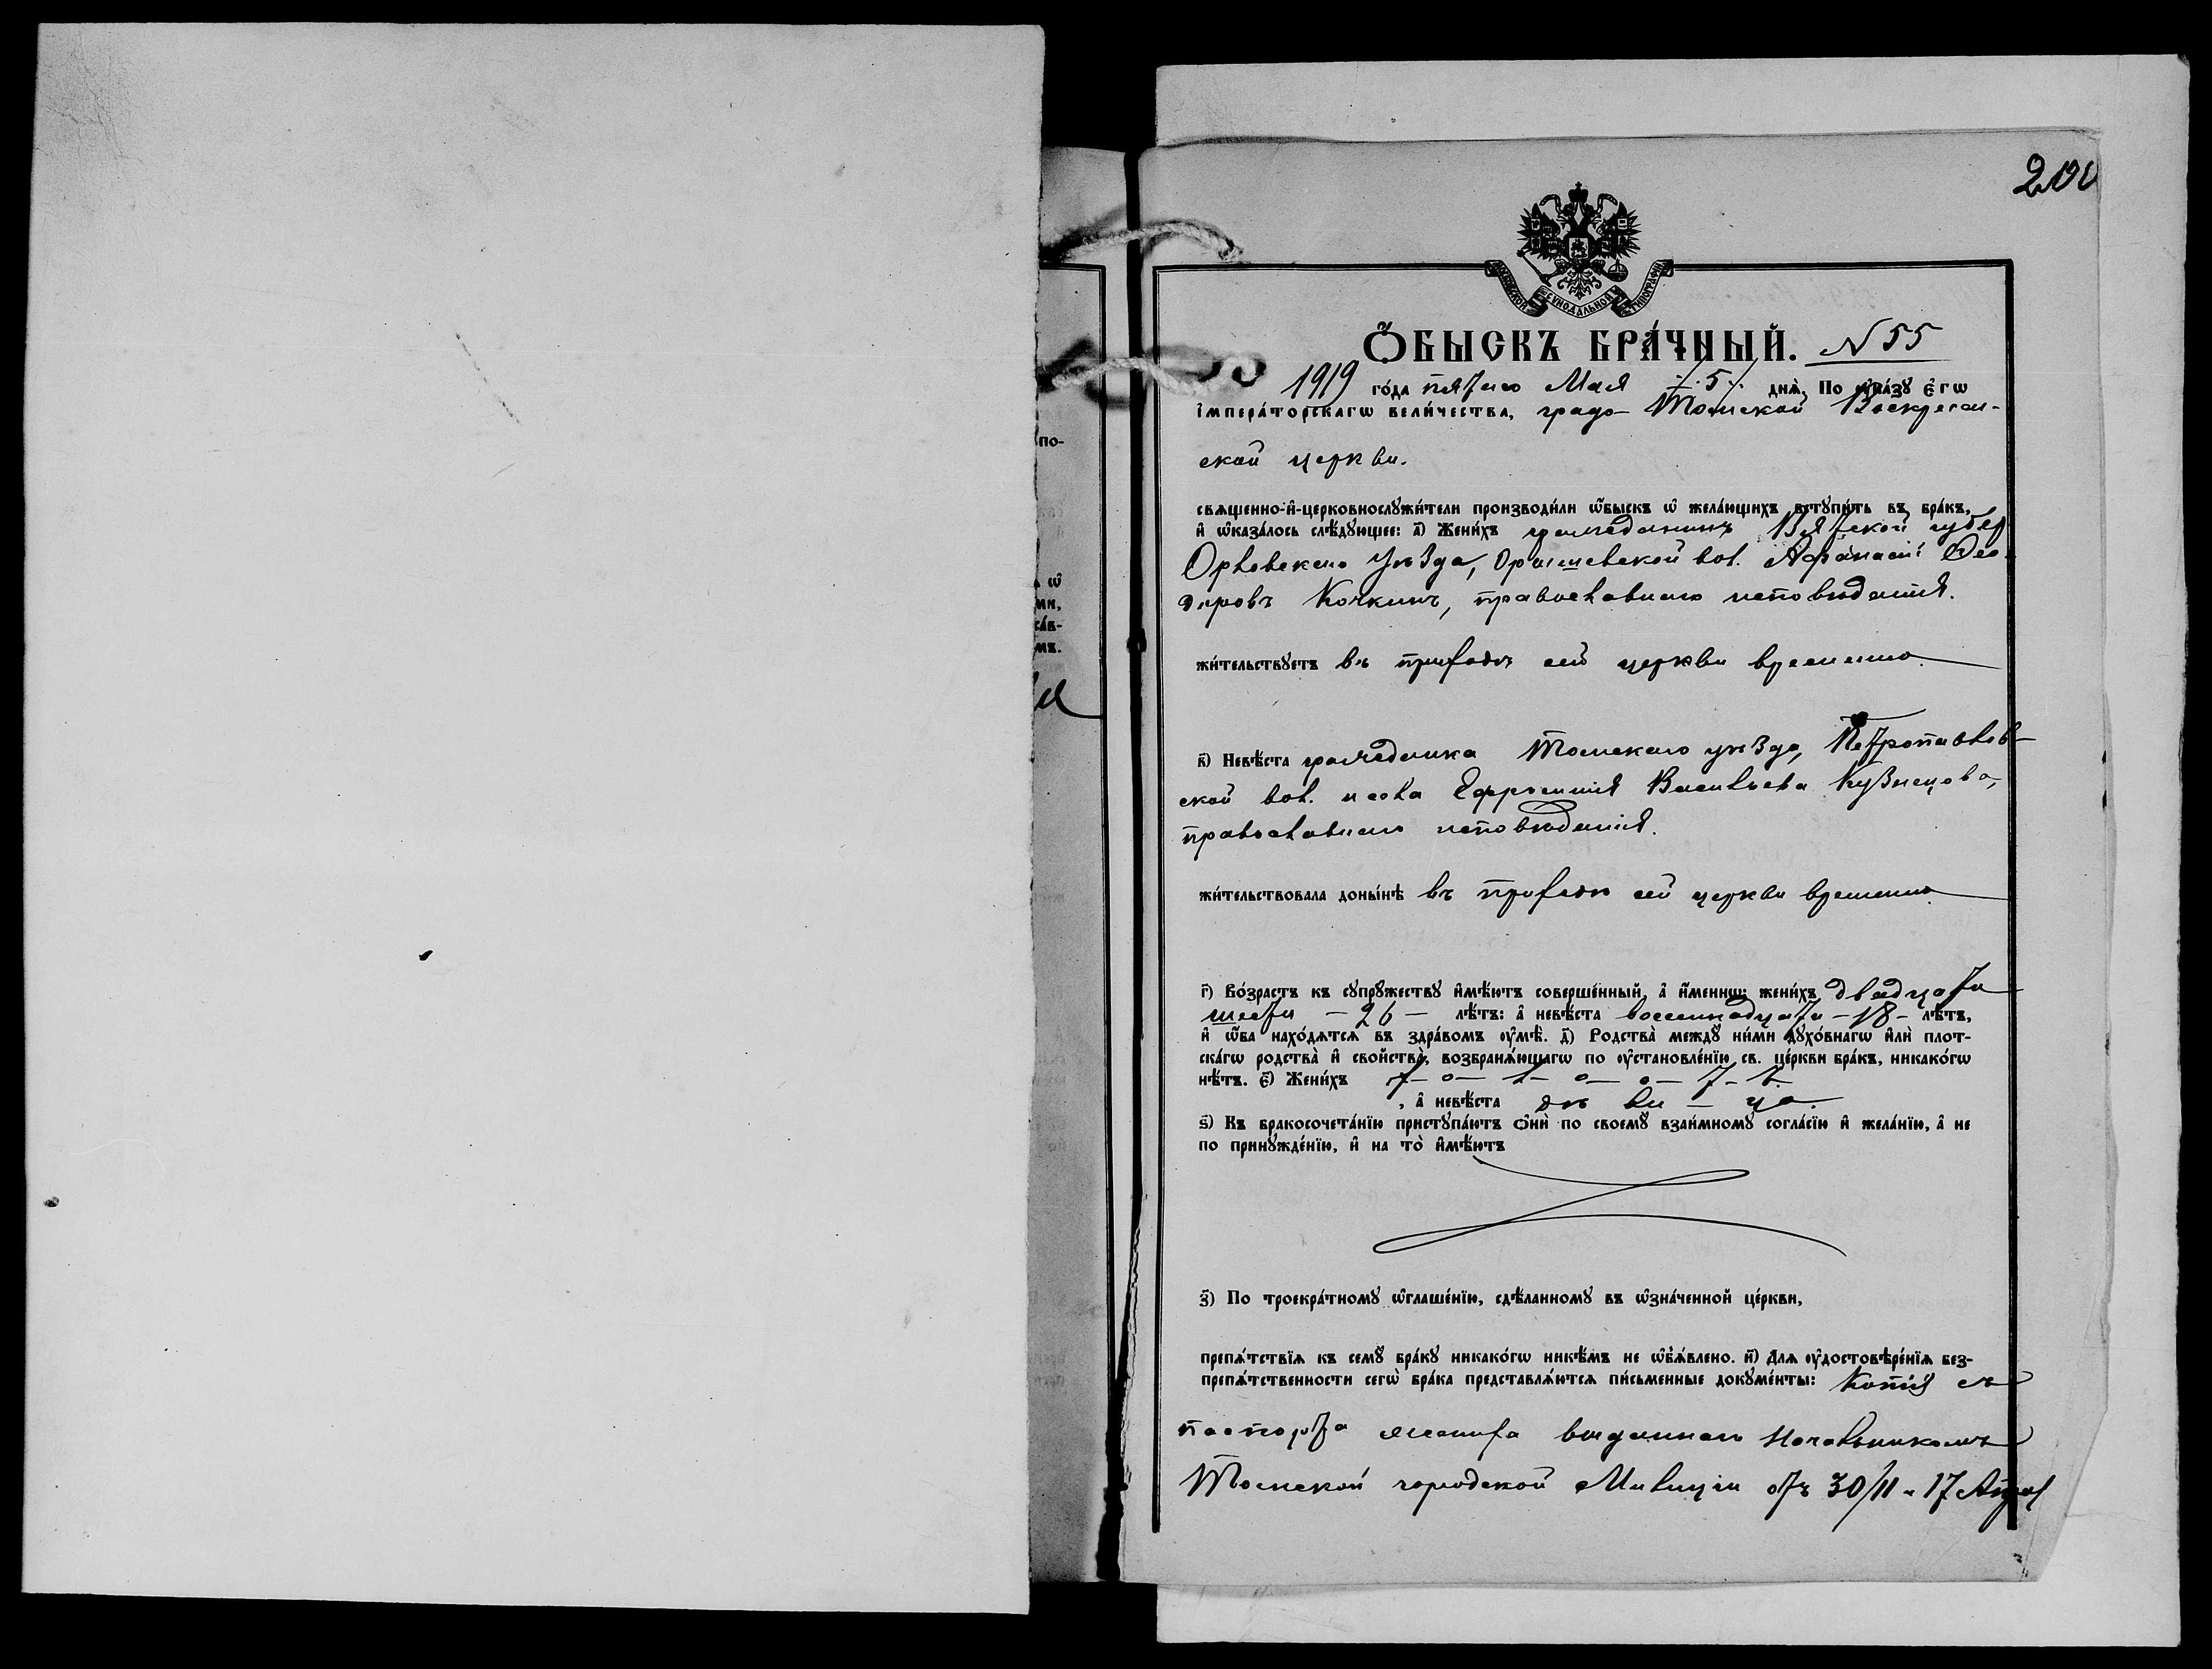 200
МОСКОВСКОЙ СѴНОДАЛЬНОЙ ТИПОГРАФІИ
Ѻ҆БЫСКЪ БРА́ЧНЫЙ. N 55
1919 го́да пятаго Мая /.5./ днѧ̀, По ᲂу҆ка́зꙋ є҆гѡ̀
і҆мпера́торскагѡ вели́чества, градо-Томской Воскресен-
ской церкви.
свѧщенно-и҆-церковнослꙋжи́тели производи́ли ѡ҆́быскъ ѡ҆ жела́ющихъ встꙋпи́ть въ бра́къ,
и҆ ѡ҆каза́лось слѣ́дꙋющее: а҃) Жени́хъ гражданинъ Вятской губер
Орловскаго уѣзда, вол. Афанасій Ѳео-
доровъ Кочкинъ, православнаго исповѣданія.
жи́тельствꙋетъ въ приходѣ сей церкви временно.
в҃) Невѣ́ста гражданка Томскаго уѣзда, Петропавлов-
ской вол. и села Ефросинія Васильева Кузнецова,
православнаго исповѣданія.
жи́тельствовала доны́нѣ въ приходѣ сей церкви временно.
г҃) Во́зрастъ къ сꙋпрꙋ́жествꙋ и҆мѣ́ютъ соверше́нный, а҆ и҆́меннѡ: жени́хъ двадцати
шести - 26 - лѣ́тъ: а҆ невѣ́ста восемнадцати - 18 - лѣ́тъ,
и҆ ѡ҆́ба нахо́дѧтсѧ въ здра́вомъ ᲂу҆мѣ̀. д҃) Родства̀ междꙋ̀ ни́ми дꙋхо́внагѡ и҆лѝ плот-
ска́гѡ родства̀ и҆ сво́йства̀, возбранѧ́ющагѡ по ᲂу҆становле́нїю св. це́ркви бра́къ, никако́гѡ
нѣ́тъ. є҃) Жени́хъ х-о-л-о-с-т-ъ.
, а҆ невѣ́ста дѣ ви - ца.
ѕ҃) Къ бракосочета́нїю пристꙋпа́ютъ ѻ҆нѝ по своемꙋ̀ взаи́мномꙋ согла́сїю и҆ жела́нїю, а҆ не
по принꙋжде́нїю, и҆ на то̀ и҆мѣ́ютъ
з҃) По троекра́тномꙋ ѡ҆глаше́нїю, сдѣ́ланномꙋ въ ѡ҆зна́ченной це́ркви,
препѧ́тствїѧ къ семꙋ̀ бра́кꙋ никако́гѡ никѣ́мъ не ѡ҆бъѧ́влено. и҃) Длѧ ᲂу҆достовѣре́нїѧ без-
препѧ́тственности сегѡ̀ бра́ка представлѧ́ютсѧ пи́сьменные докꙋме́нты: Копія съ
паспорта жениха выданнаго Начальникомъ
Томской городской Милиціи отъ 30/II - 17 Апрел
по-
ѡ҆
ми,
са́в-
мъ.